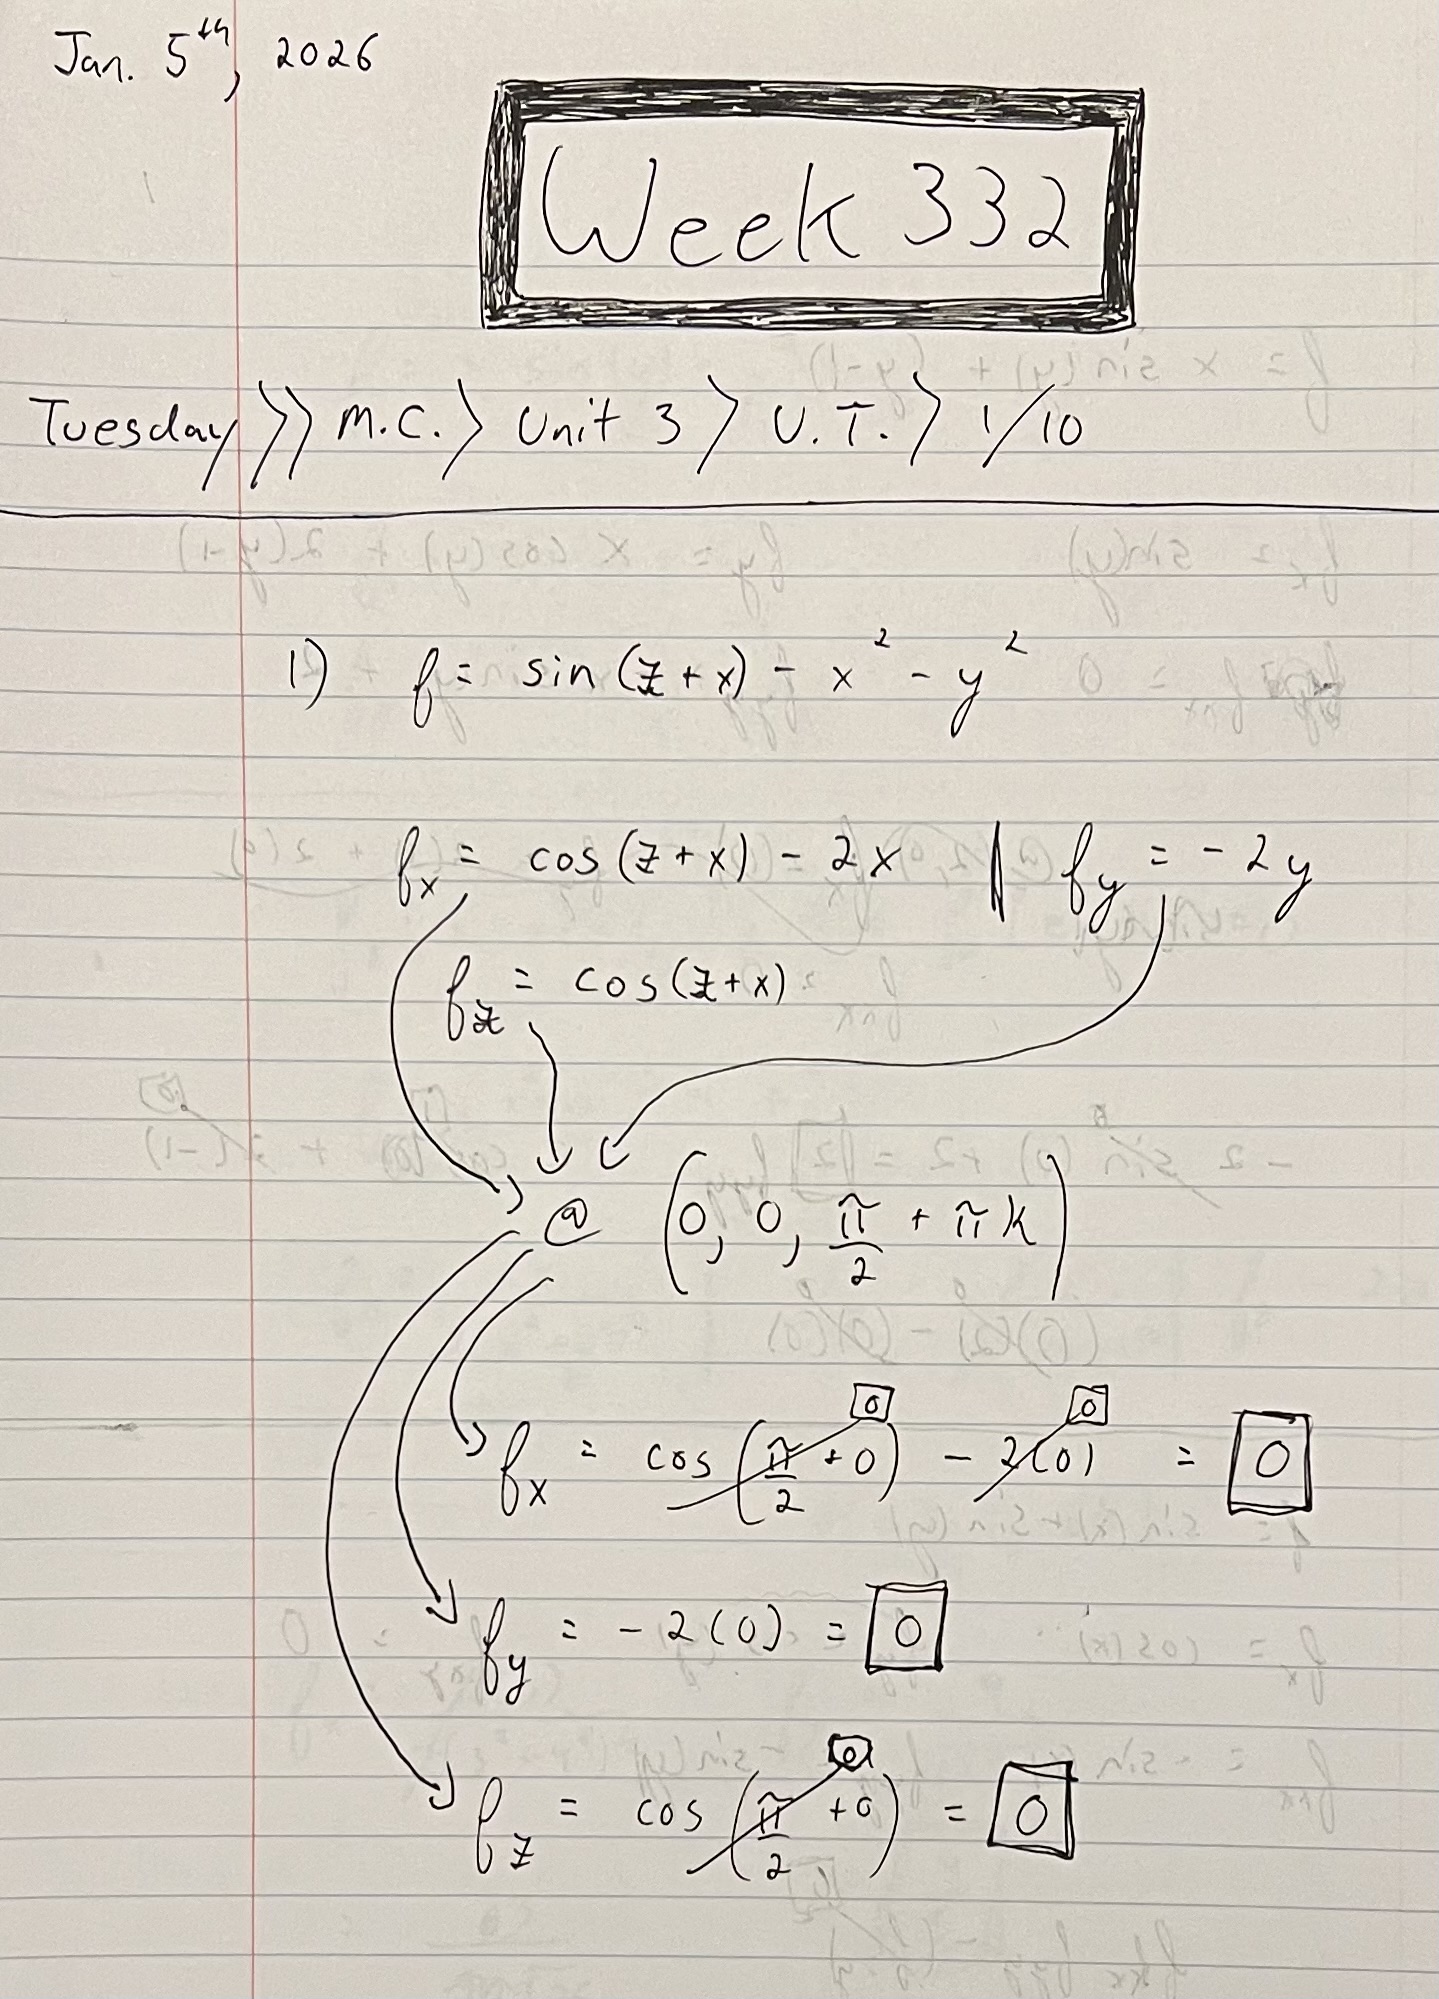 Jan. 5th, 2026
Week 332
Tuesday >> M.C. > Unit 3 > U.T. > 1/10
1) f = sin(z+x) - x² - y²
fx = cos(z+x) - 2x | fy = -2y
fz = cos(z+x)
@ (0, 0, π/2 + πk)
0 0
fx = cos(π/2 + 0) - 2(0) = 0
fy = -2(0) = 0
0
fz = cos(π/2 + 0) = 0